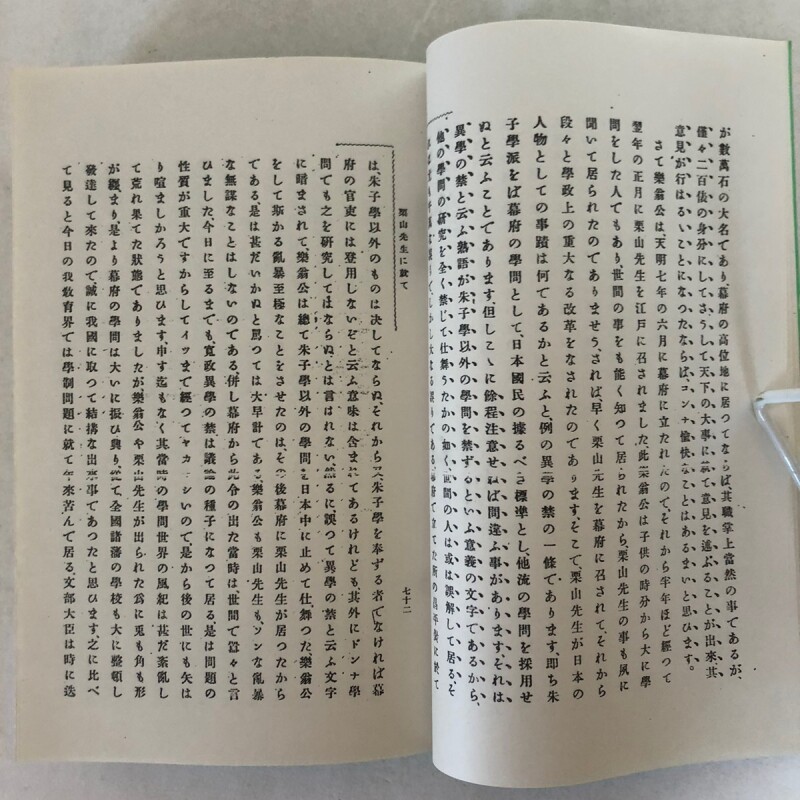 が數萬石の大名であり、幕府の高位地に居つてならば、其職掌上當然の事であるが、
僅々二百俵の身分にして、さうして天下の大事に就て意見を述ぶることが出來、其
意見が行はるいことになつたならば、コンナ愉快なことはあるまいと思ひます。
さて樂翁公は、天明七年の六月に幕府に立たれたので、それから半年ほど經つて
翌年の正月に栗山先生を江戸に召されました、此樂翁公は子供の時分から大に學
問をした人でもあり、世間の事をも能く知つて居られたから、栗山先生の事も夙に
聞いて居られたのでありませう、されば、早く栗山先生を幕府に召されて、それから
段々と學政上の重大なる改革をなされたのであります、そこで、栗山先生が日本の
人物としての事蹟は何であるかと云ふと、例の異學の禁の一條であります、即ち朱
子學派をば幕府の學問として、日本國民の據るべき標準とし、他流の學問を採用せ
ぬと云ふことであります、但しこゝに餘程注意せねば間違ふ事があります、それは
異學の禁と云ふ熟語が朱子學以外の學問を禁ずるといふ意義の文字であるから、
他の學問の研究を全く禁じて仕舞うたかの如く、世間の人は或は誤解して居る、そ
栗山先生に就て
七十二
は、朱子學以外のものは決してならぬ、それから又朱子學を奉ずる者でなければ幕
府の官吏には登用しないぞと云ふ意味は含まれてあるけれども、其外にドンナ學
問でも之を研究してはならぬとは言はれない、然るに誤つて異學の禁と云ふ文字
に暗まされて、樂翁公は總て朱子學以外の學問を日本中に止めて仕舞つた、樂翁公
をして斯かる亂暴至極なことをさせたのは、その後幕府に栗山先生が居つたから
である、是は甚だいかぬと罵つては大早計である、樂翁公も栗山先生も、ソンな亂暴
な無謀なことはしないのである、併し幕府から此令の出た當時は、世間で囂々と言
ひました、今日に至るまでも、寛政異學の禁は議論の種子になつて居る、是は問題の
性質が重大ですからしてイツまで經つてヤカ シいので、是から後の世にも矢は
り喧ましかろうと思ひます、申す迄もなく其當時の學問世界の風紀は甚だ紊亂し
て荒れ果てた狀態でありましたが、樂翁公や栗山先生が出られた爲に兎も角も形
が纒まり、是より幕府の學問は大いに振ひ興り、從て全國諸藩の學校も大に整頓し
發達して來たので、誠に我國に取つて結搆な出來事であつたと思ひます、之に比べ
て見ると今日の我敎育界では學制問題に就て年來苦んで居る、文部大臣は時に迭